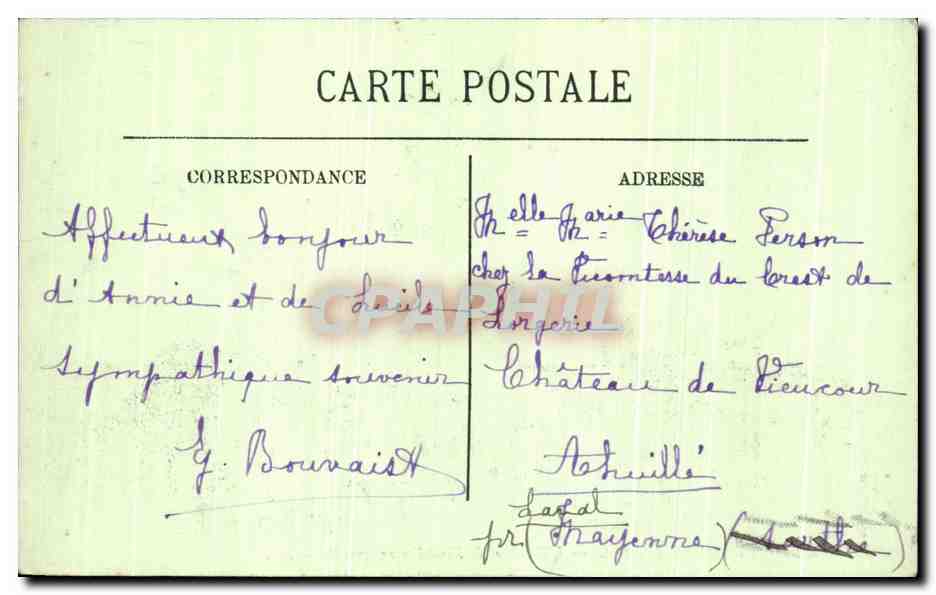 CARTE POSTALE
CORRESPONDANCE
Affectueux bonjour
d'Annie et de Lucile
Sympathique souvenir
G. Bouvaist
ADRESSE
Melle Marie Thérèse Ferson
chez la Vicomtesse du Crest de
Lorgerie
Château de Vieucour
Ahuillé
pr Laval
(Mayenne) (Sarthe)
CPAPHIL